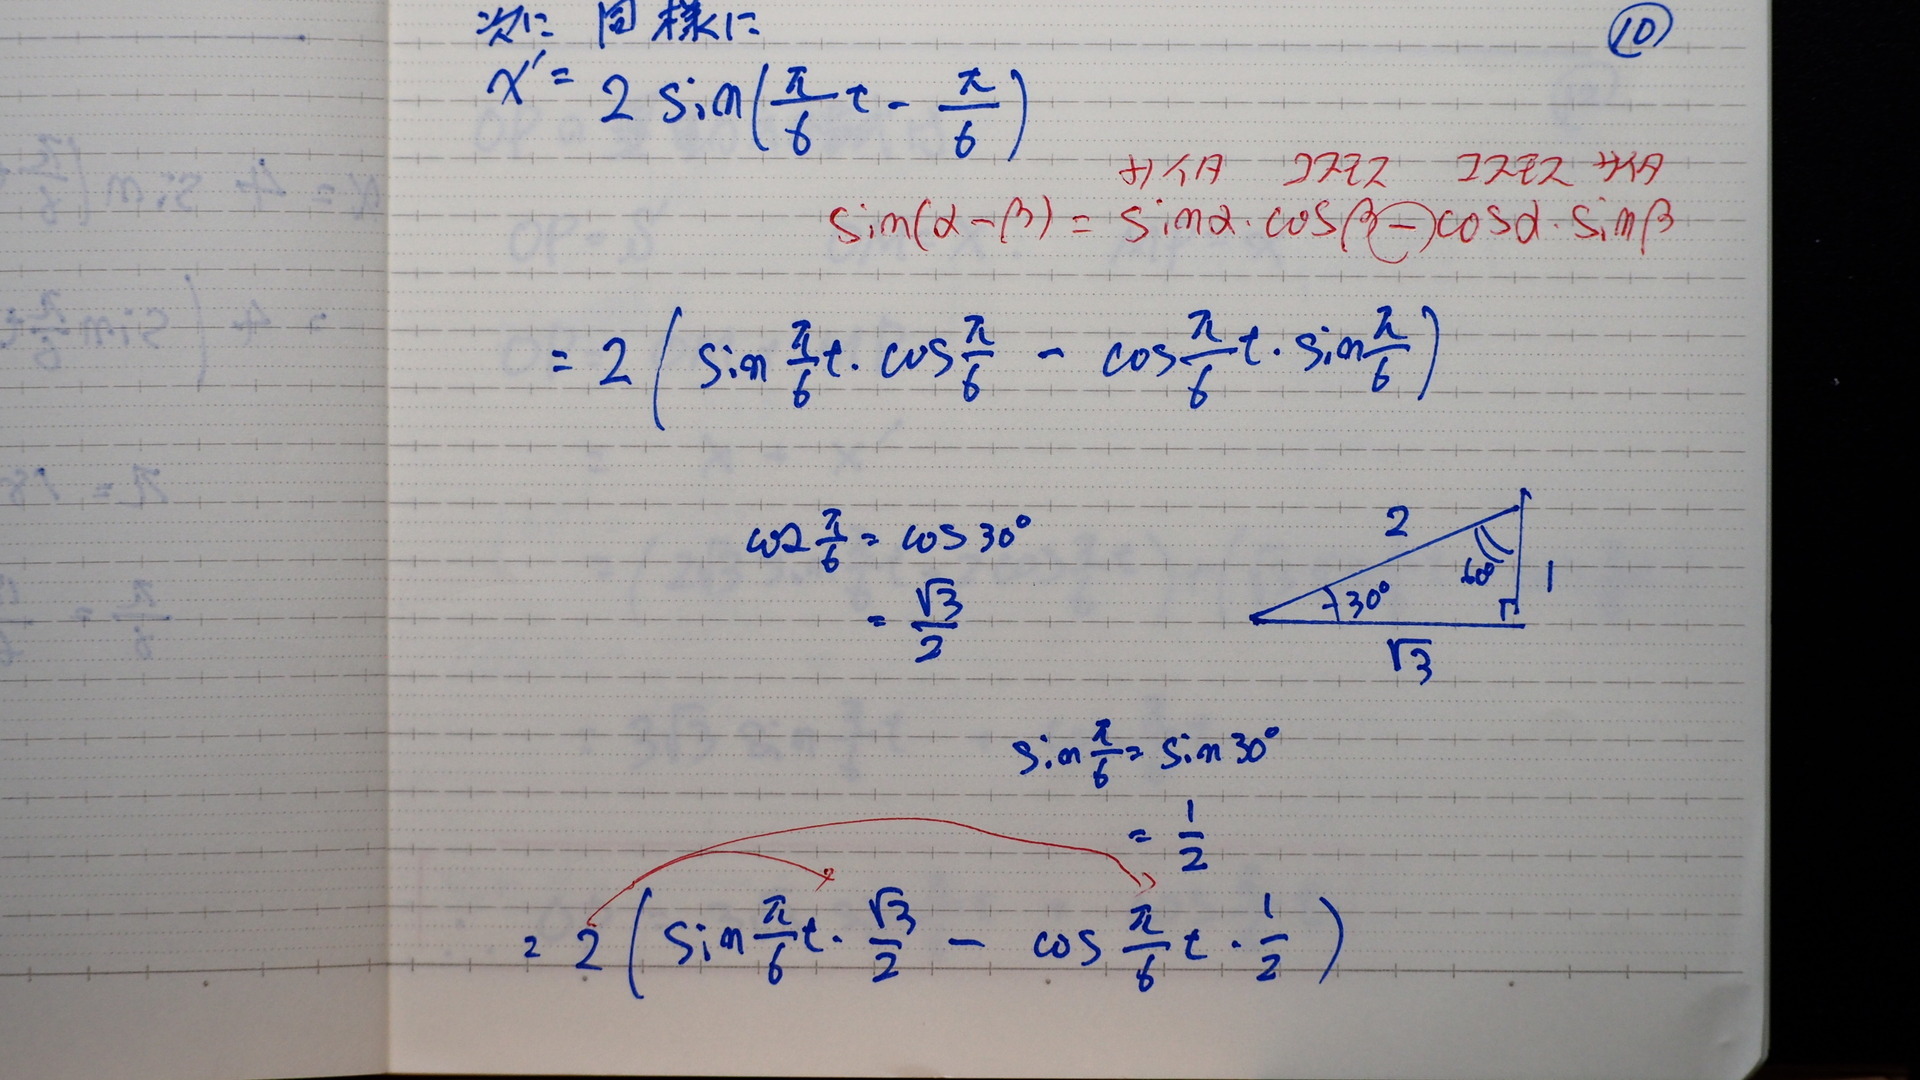 次に 同様に
⑩
x' = 2 sin(π/6 t - π/6)
サイタ コスモス コスモス サイタ
sin(α-β) = sinα・cosβ - cosα・sinβ
= 2 ( sin π/6 t・cos π/6 - cos π/6 t・sin π/6 )
cos π/6 = cos 30°
= √3/2
2
60°
1
30°
√3
sin π/6 = sin 30°
= 1/2
= 2 ( sin π/6 t・√3/2 - cos π/6 t・1/2 )